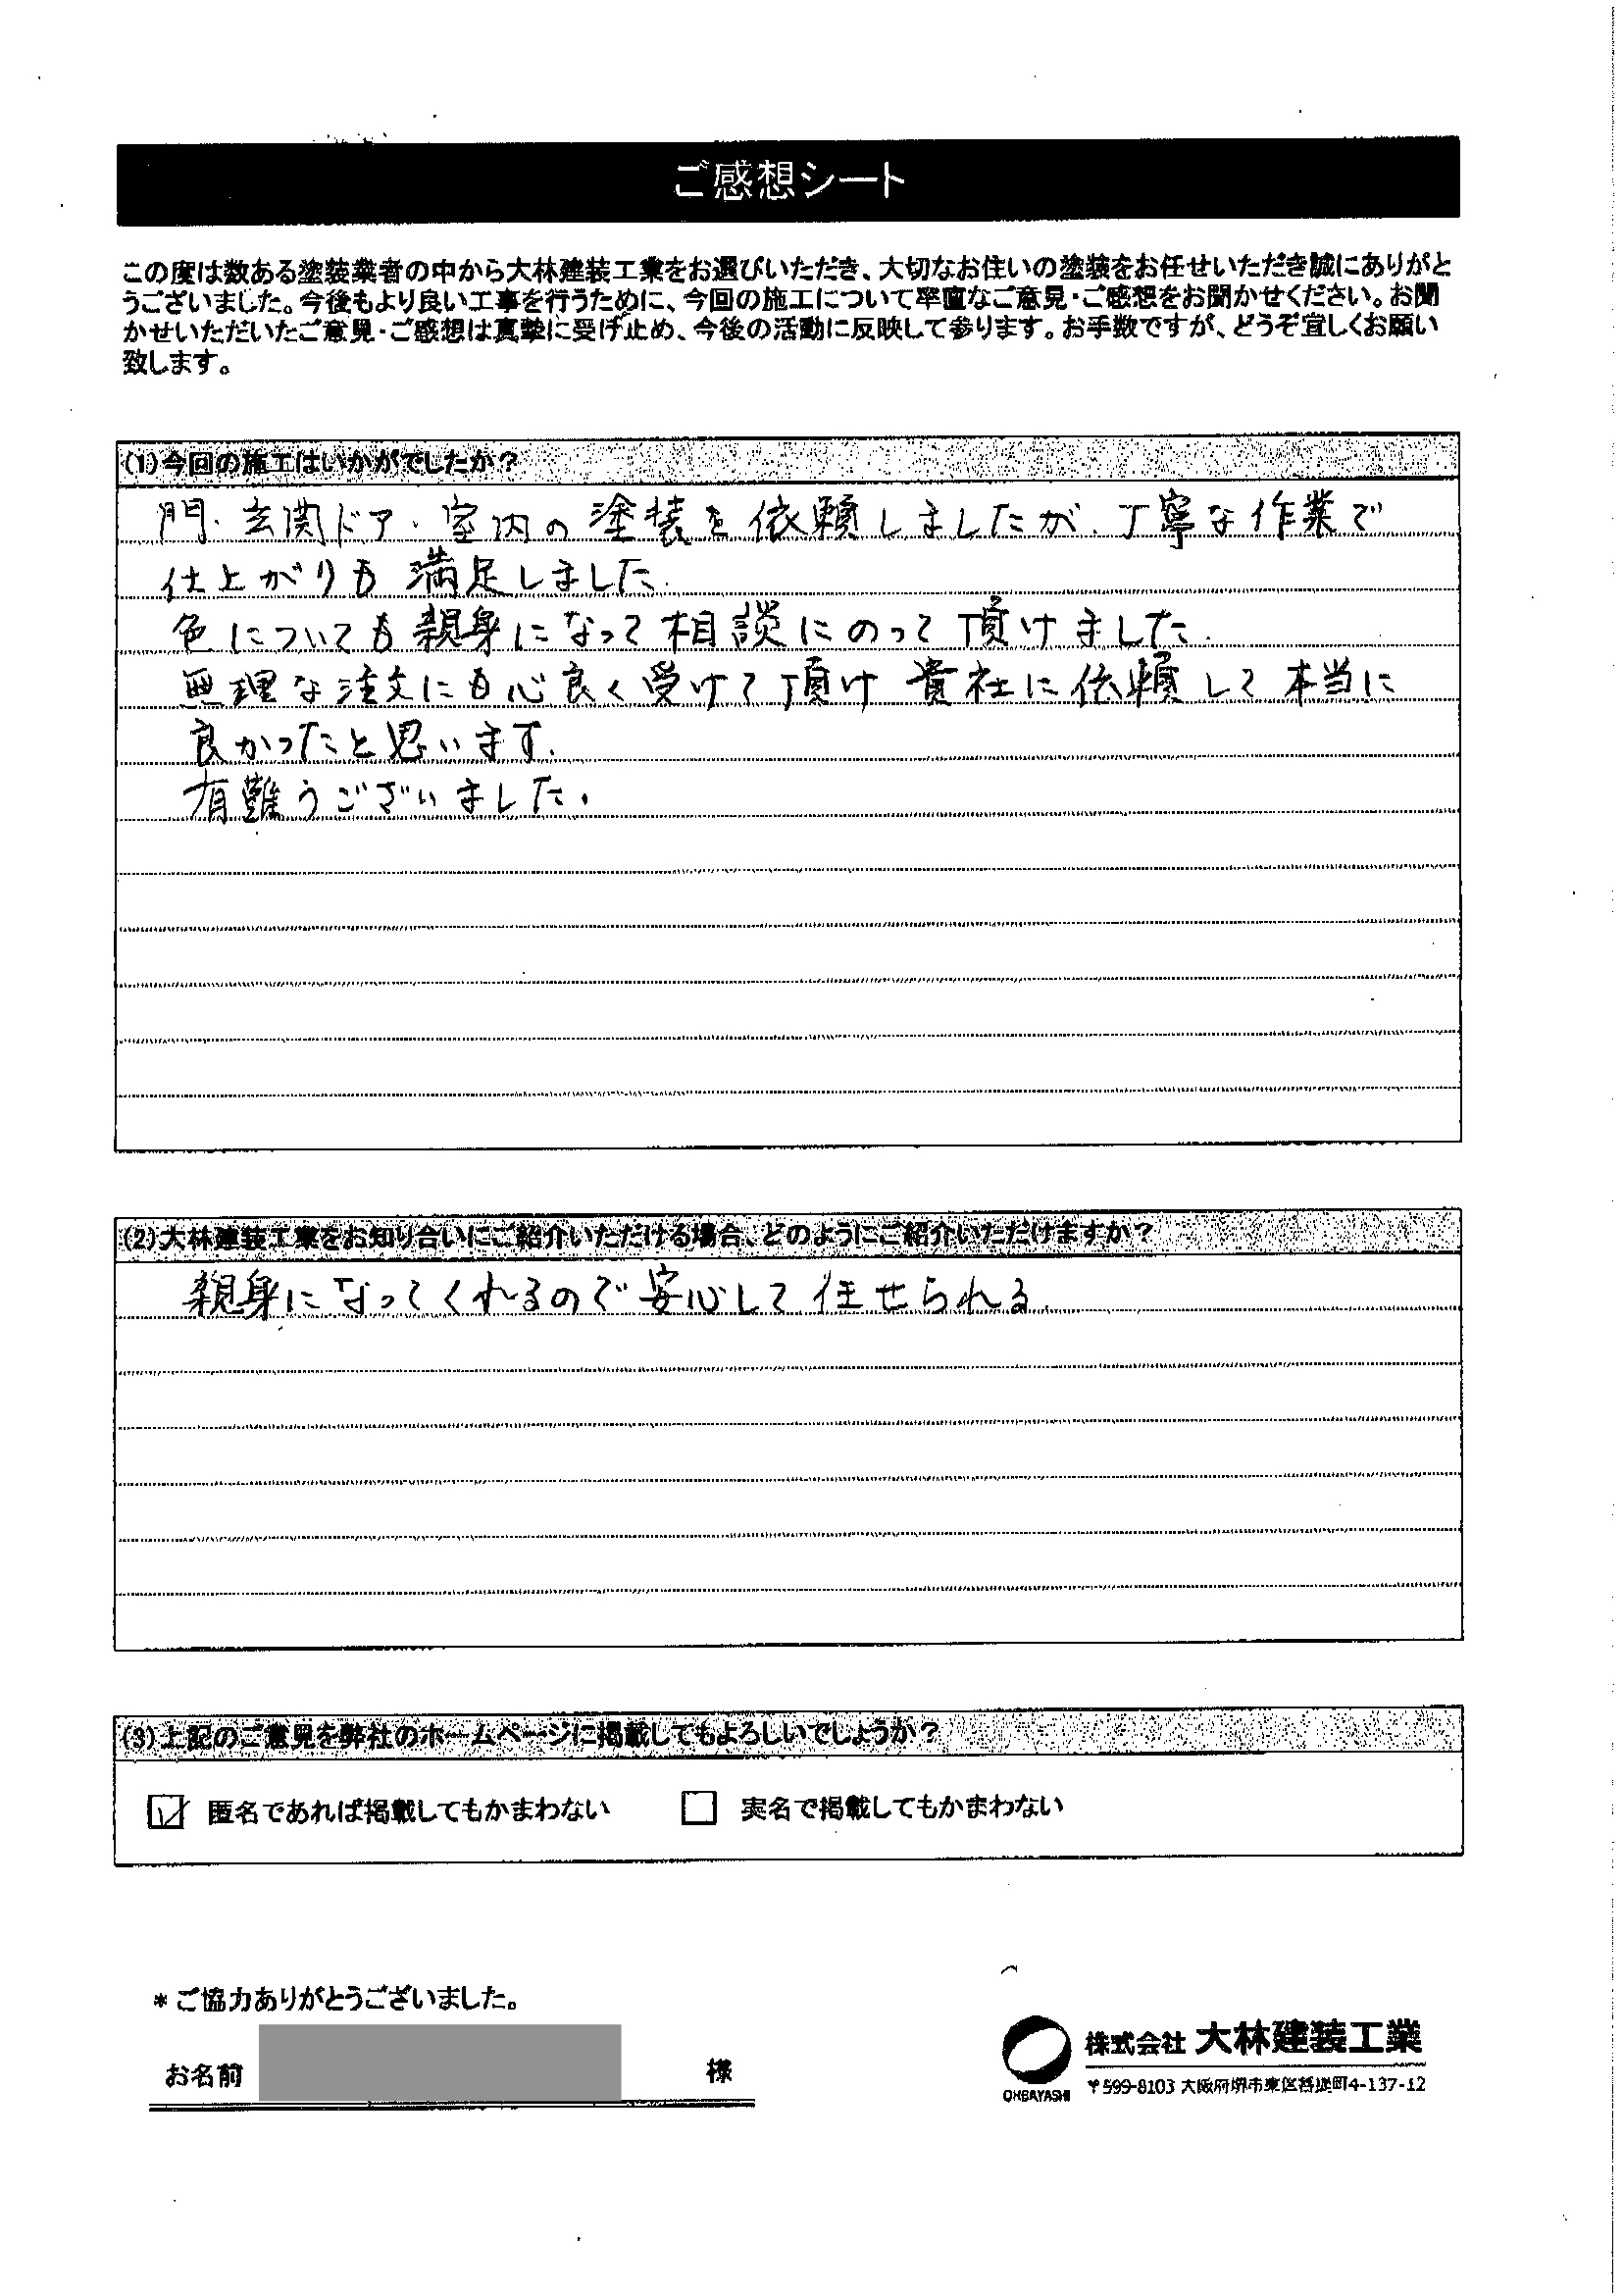 ご感想シート
この度は数ある塗装業者の中から大林建装工業をお選びいただき、大切なお住いの塗装をお任せいただき誠にありがと
うございました。今後もより良い工事を行うために、今回の施工について率直なご意見・ご感想をお聞かせください。お聞
かせいただいたご意見・ご感想は真摯に受け止め、今後の活動に反映して参ります。お手数ですが、どうぞ宜しくお願い
致します。
(1)今回の施工はいかがでしたか?
門、玄関ドア、室内の塗装を依頼しましたが、丁寧な作業で
仕上がりも満足しました。
色についても親身になって相談にのって頂けました。
無理な注文にも心良く受けて頂け貴社に依頼して本当に
良かったと思います。
有難うございました。
(2)大林建装工業をお知り合いにご紹介いただける場合、どのようにご紹介いただけますか?
親身になってくれるので安心して任せられる。
(3)上記のご意見を弊社のホームページに掲載してもよろしいでしょうか?
匿名であれば掲載してもかまわない 実名で掲載してもかまわない
*ご協力ありがとうございました。
お名前 様
株式会社 大林建装工業
OHBAYASHI 〒599-8103 大阪府堺市東区菩提町4-137-12